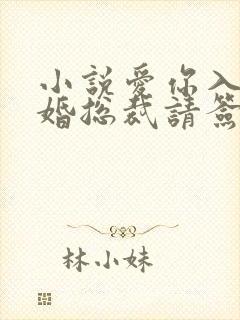 小說愛你入
婚總裁請簽
林小妹